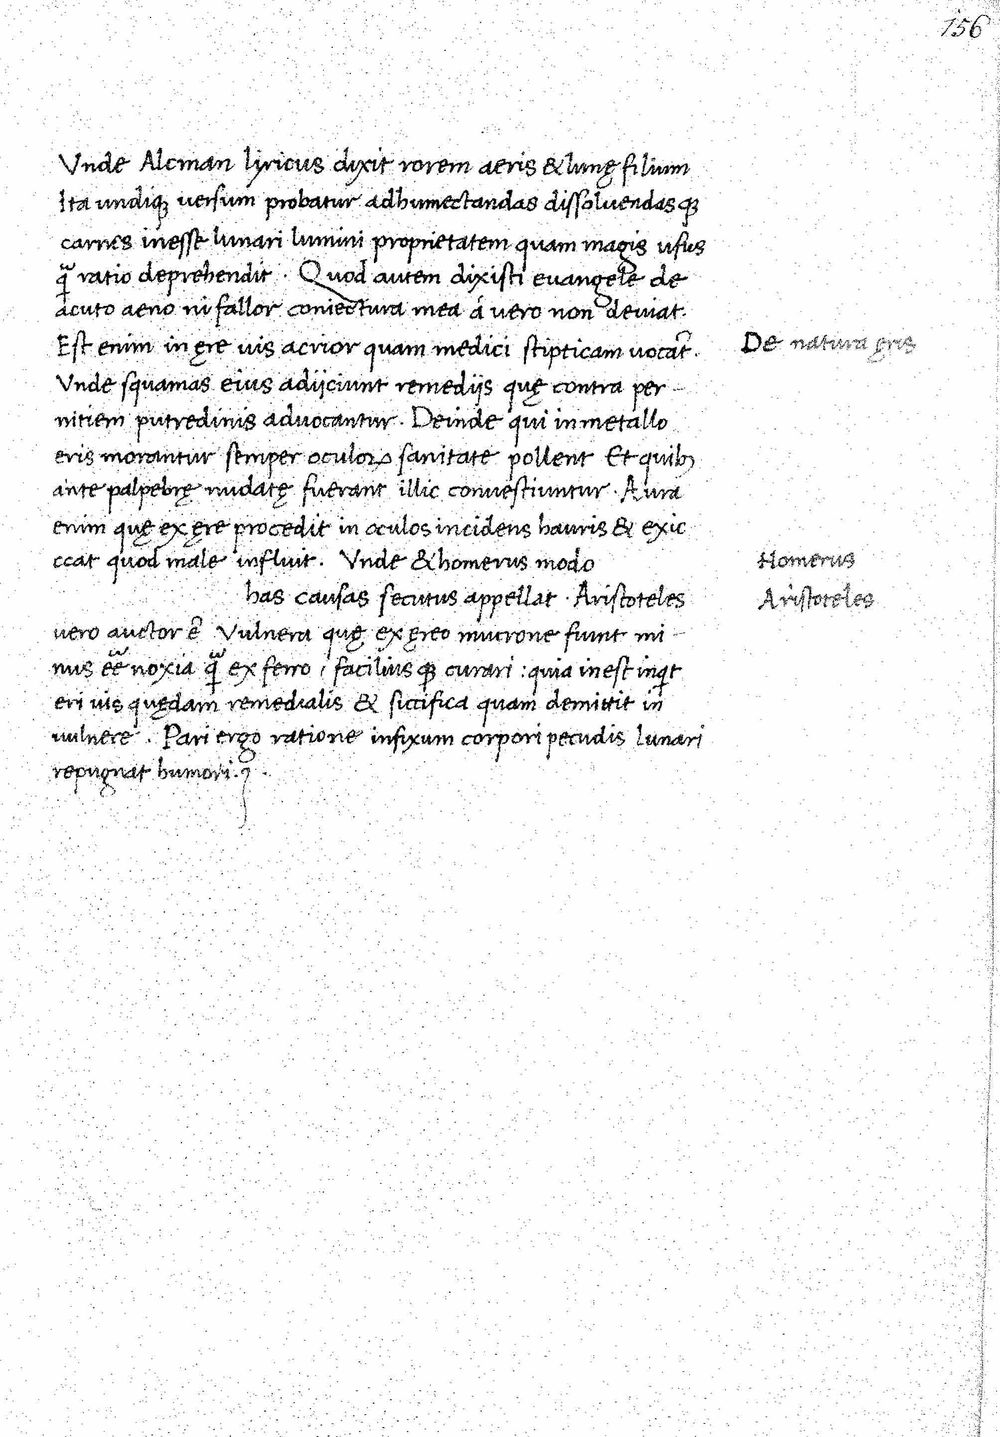 156
Vnde Alcman lyricus dixit rorem aeris & lunę filium
Ita undiqꝫ uersum probatur adhumectandas dissoluendasqꝫ
carnes inesse lunari lumini proprietatem quam magis usus
q̃ ratio deprehendit. Quod autem dixisti euangele de
acuto aeno ni fallor coniectura mea á uero non deuiat.
Est enim in ęre uis acrior quam medici stipticam uocat̃.
De natura ęris
Vnde squamas eius adijciunt remedijs quę contra per-
nitiem putredinis aduocantur. Deinde qui in metallo
eris morantur semper oculoꝝ sanitate pollent Et quibꝫ
ante palpebrę nudatę fuerant illic conuestiuntur. Aura
enim quę ex ęre procedit in oculos incidens hauris & exic
ccat quod male influit. Vnde & homerus modo
Homerus
has causas secutus appellat. Aristoteles
Aristoteles
uero auctor ē Vulnera quę ex ęreo mucrone fiunt mi-
nus ēē noxia q̃ ex ferro, faciliusqꝫ curari: quia inest inqt
eri uis quędam remedialis & siccifica quam demittit in
uulnere. Pari ergo ratione infixum corpori pecudis lunari
repugnat humori.